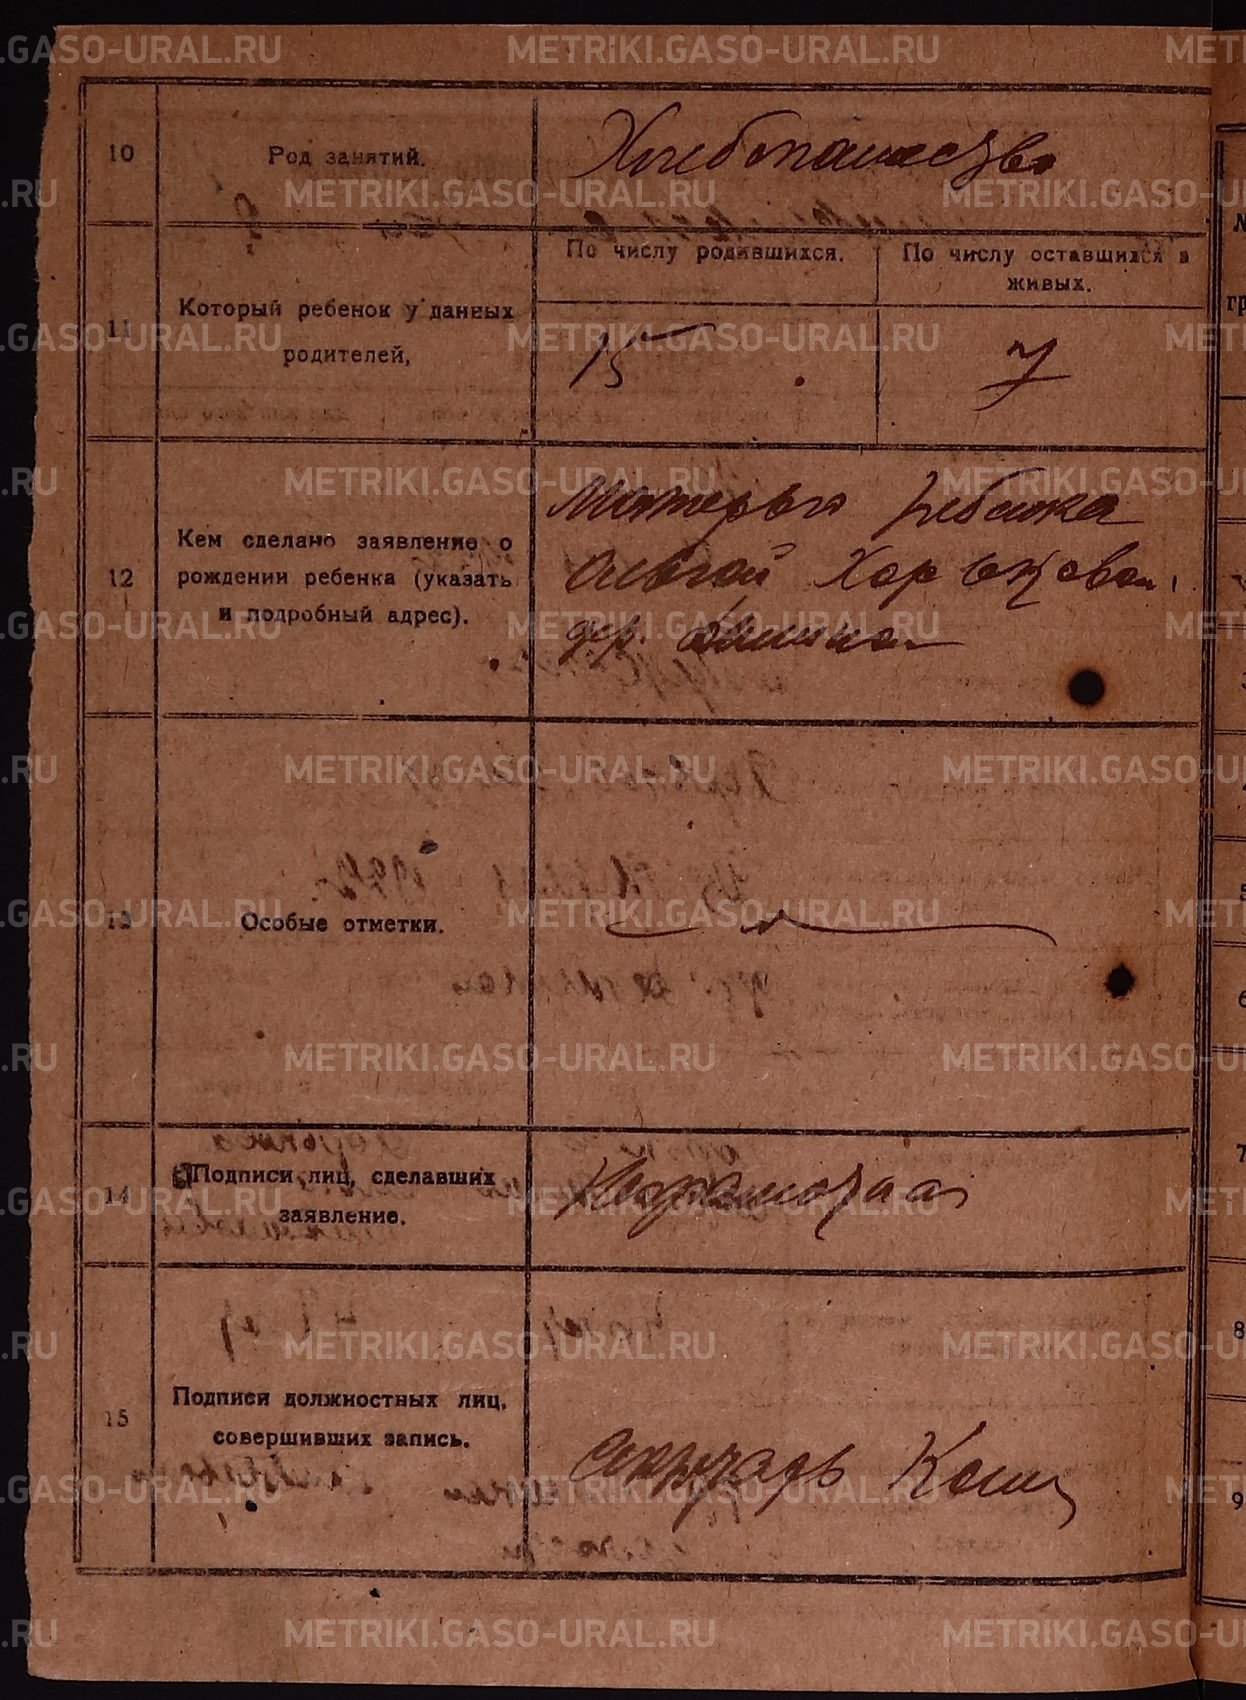 METRIKI.GASO-URAL.RU
10 Род занятий. Хлебопашество
11 Который ребенок у данных родителей,
По числу родившихся. По числу оставшихся в живых.
15 7
12 Кем сделано заявление о рождении ребенка (указать и подробный адрес).
Матерью ребенка
Ольгой Хорьковой
дер.
13 Особые отметки.
14 Подписи лиц, сделавших заявление.
Неграмотная
15 Подписи должностных лиц, совершивших запись.
5
6
7
8
9